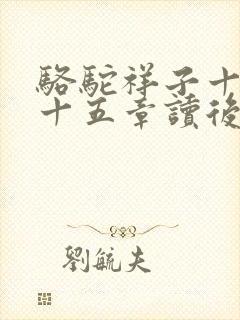 駱駝祥子十
十五章讀後
劉毓夫